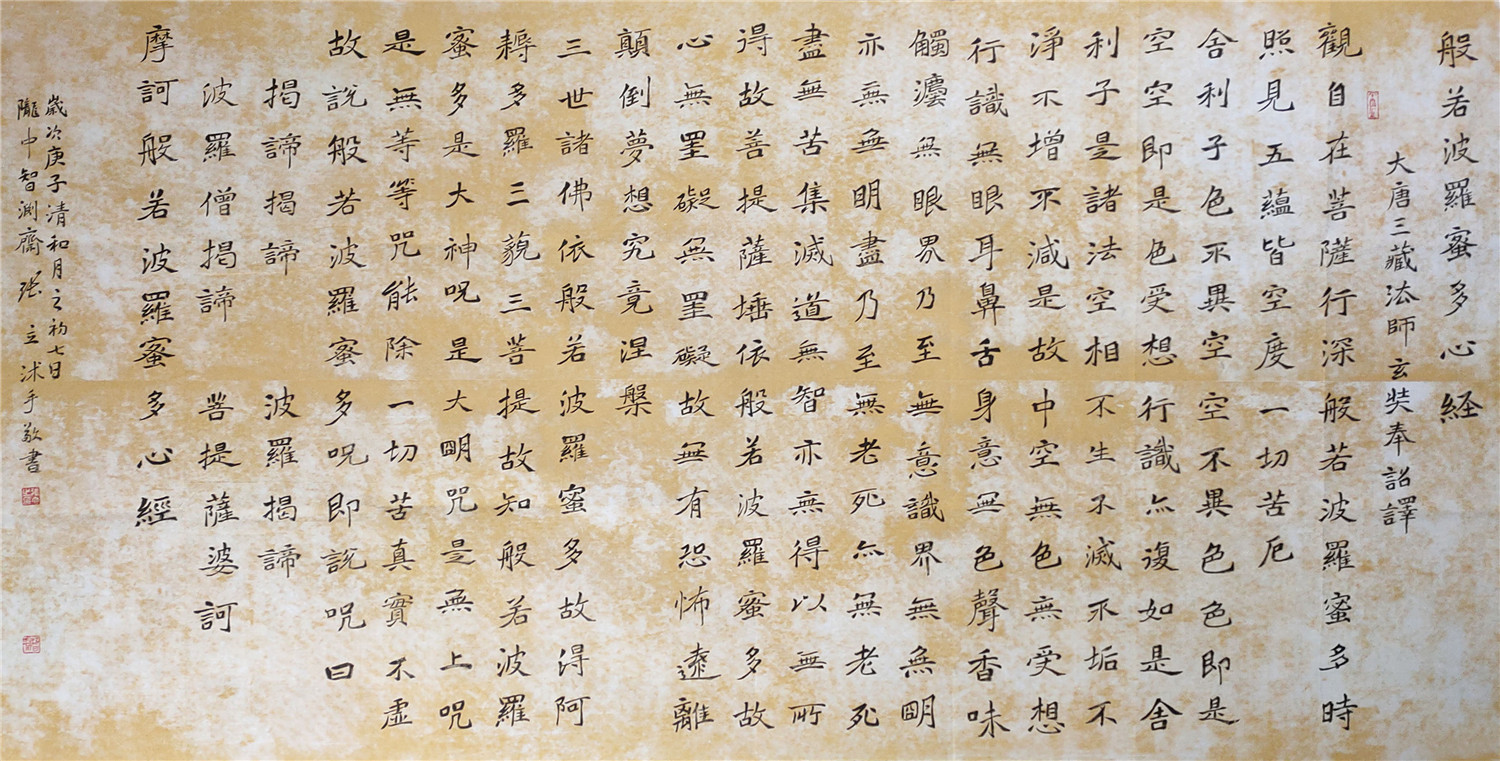 般若波羅蜜多心経
大唐三藏法師玄奘奉詔譯
觀自在菩薩行深般若波羅蜜多時
照見五蘊皆空度一切苦厄
舍利子色不異空空不異色色即是
空空即是色受想行識亦復如是舍
利子是諸法空相不生不滅不垢不
淨不增不減是故中空無色無受想
行識無眼耳鼻舌身意無色聲香味
觸灋無眼界乃至無意識界無無明
亦無無明盡乃至無老死亦無老死
盡無苦集滅道無智亦無得以無所
得故菩提薩埵依般若波羅蜜多故
心無罣礙無罣礙故無有恐怖遠離
顛倒夢想究竟涅槃
三世諸佛依般若波羅蜜多故得阿
耨多羅三藐三菩提故知般若波羅
蜜多是大神咒是大明咒是無上咒
是無等等咒能除一切苦真實不虛
故說般若波羅蜜多咒即說咒曰
揭諦揭諦 波羅揭諦
波羅僧揭諦 菩提薩婆訶
摩訶般若波羅蜜多心經
歲次庚子清和月之初七日
隴中智渊齋張立沭手敬書